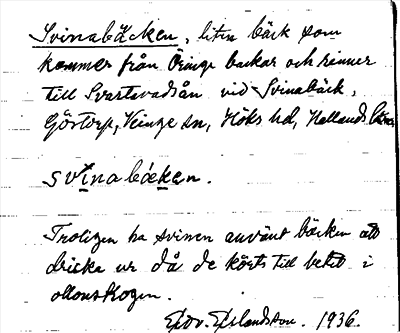 Svinabäcken, liten bäck som
kommer från Öringe backar och rinner
till Svartavadsån vid Svinabäck,
Göstorp, Veinge sn, Höks hd, Hallands län
svinabäcken.
Troligen ha svinen använt bäcken att
dricka ur då de körts till betet i
ollonskogen.
Edv. 1936.